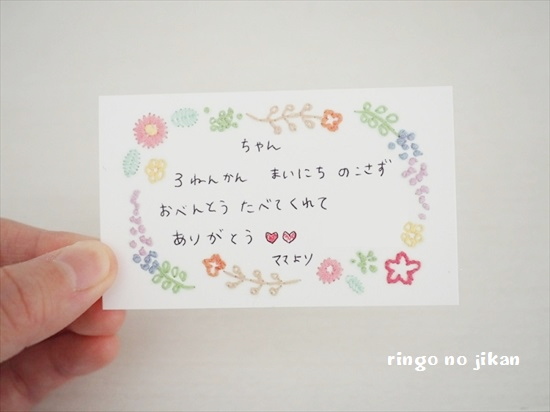 ちゃん
3ねんかん まいにち のこさず
おべんとう たべてくれて
ありがとう
ママより
ringo no jikan